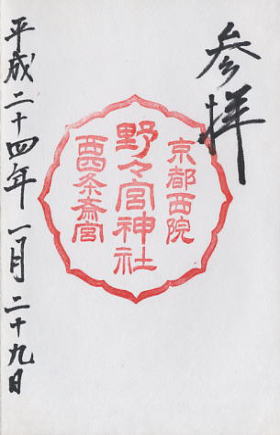 参拝
京都西院
野々宮神社
西四条斎宮
平成二十四年一月二十九日